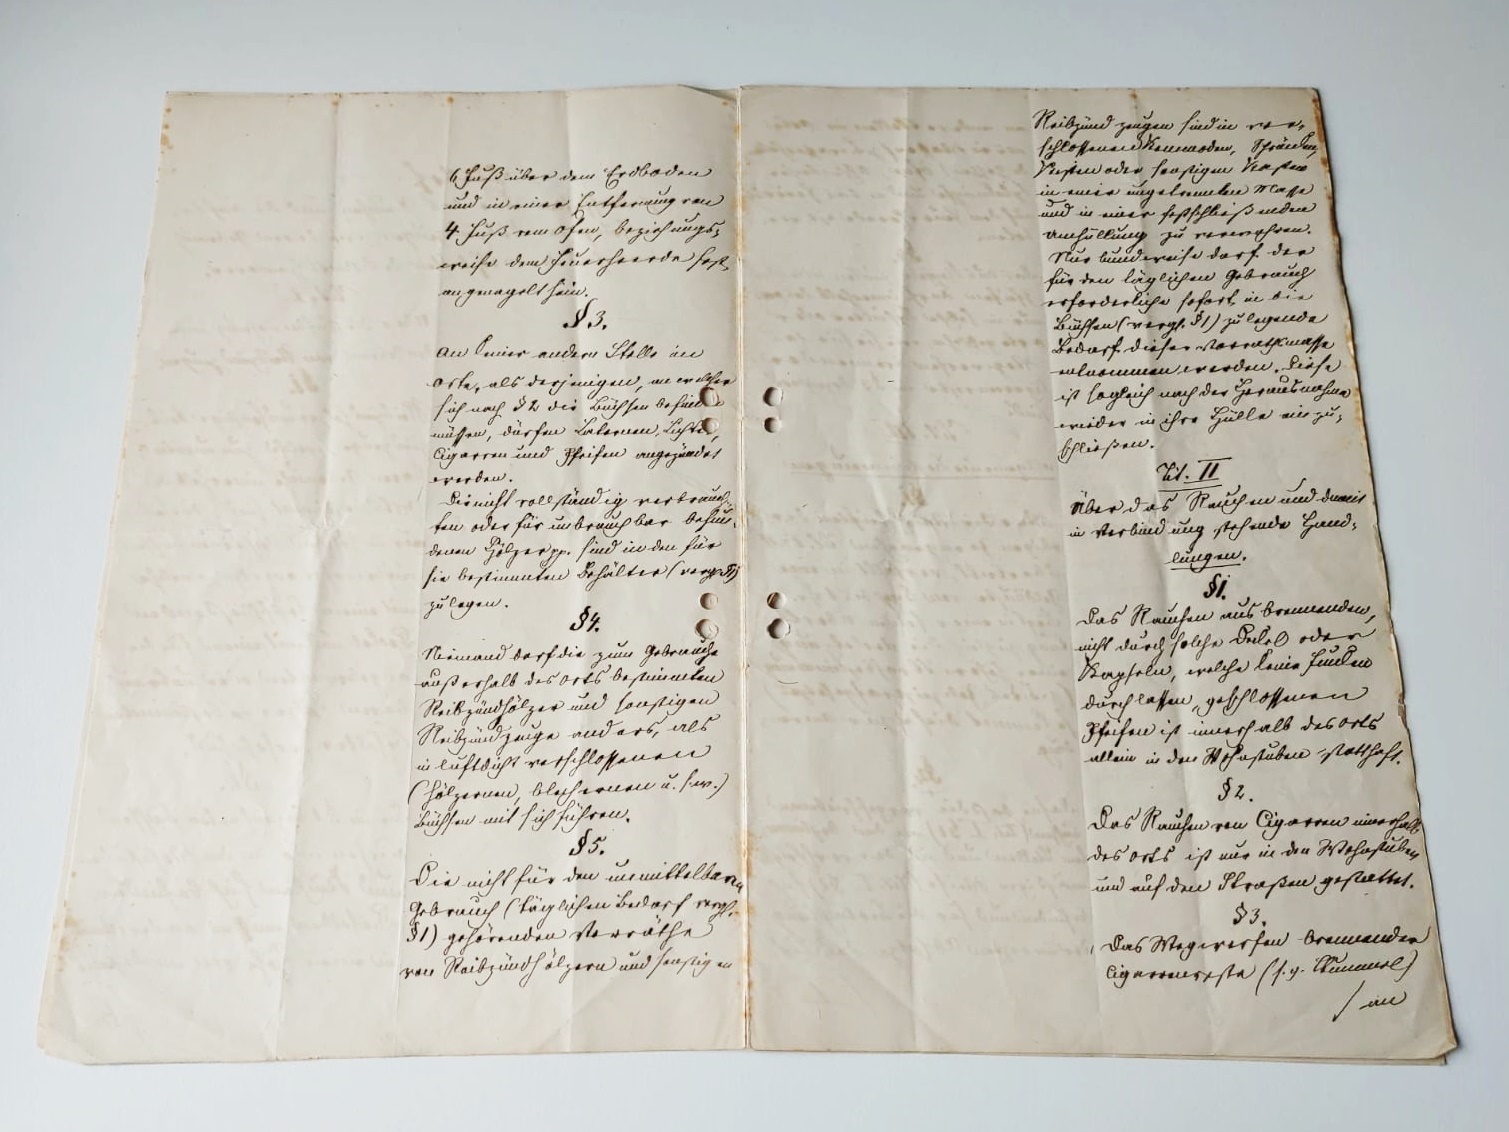 6 Fuß über dem Erdboden
und in einer Entfernung von
4 Fuß vom Ofen, beziehungs-
weise dem Feuerheerde fest
angenagelt sein.
§ 3.
An keiner andern Stelle im
Orte, als derjenigen, an welcher
sich nach § 2 die Büchsen befinden
müssen, dürfen Laternen, Lichte,
Cigarren und Pfeifen angezündet
werden.
Die nicht vollständig verbrauch-
ten oder für unbrauchbar befun-
denen Hölzer pp. sind in den für
sie bestimmten Behälter (vergl. §1)
zu legen.
§ 4.
Niemand darf die zum Gebrauche
außerhalb des Orts bestimmten
Reibzündhölzer und sonstigen
Reibzündzeuge anders, als
in luftdicht verschlossenen
(hölzernen, blechernen u. s. w.)
Büchsen mit sich führen.
§ 5.
Die nicht für den unmittelbaren
Gebrauch (täglichen Bedarf vergl.
§ 1) gehörenden Vorräthe
von Reibzündhölzern und sonstigen
Reibzündzeugen sind in ver-
schlossenen Kommoden, Schränken,
Kisten oder sonstigen Kasten
in einer ungetrennten Masse
und in einer festschließenden
Umhüllung zu verwahren.
Nur bundweise darf der
für den täglichen Gebrauch
erforderliche sofort in die
Büchsen (vergl. § 1) zu legende
Bedarf dieser Vorrathsmasse
entnommen werden. Diese
ist sogleich nach der Herausnahme
wieder in ihre Hülle einzu-
schließen.
Tit. II
Über das Rauchen und damit
in Verbindung stehende Hand-
lungen.
§ 1.
Das Rauchen aus brennenden,
nicht durch solche Deckel oder
Kapseln, welche keine Funken
durchlassen, geschlossenen
Pfeifen ist innerhalb des Orts
allein in den Wohnstuben statthaft.
§ 2.
Das Rauchen von Cigarren innerhalb
des Orts ist nur in den Wohnstuben
und auf den Straßen gestattet.
§ 3.
Das Wegwerfen brennender
Cigarrenreste (s. g. Stummel)
/ an